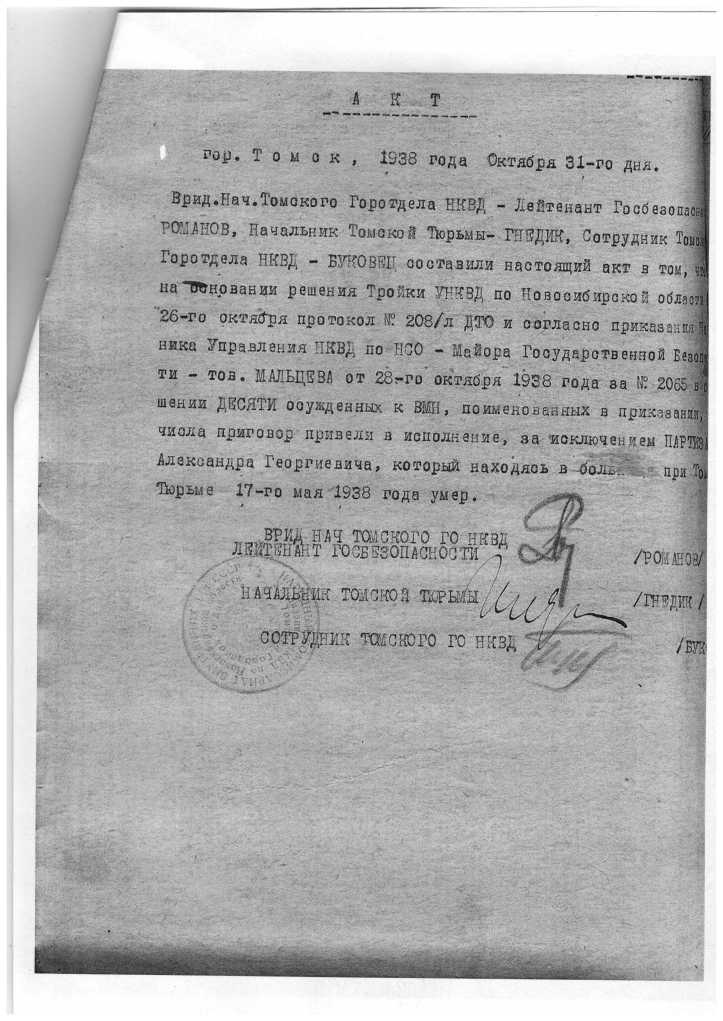 А К Т
гор. Томск, 1938 года Октября 31-го дня.
Врид.Нач.Томского Горотдела НКВД - Лейтенант Госбезопасно
РОМАНОВ, Начальник Томской Тюрьмы- ГНЕДИК, Сотрудник Томск
Горотдела НКВД - БУКОВЕЦ составили настоящий акт в том, что
на основании решения Тройки УНКВД по Новосибирской области
26-го октября протокол № 208/л ДТО и согласно приказания
ника Управления НКВД по НСО - Майора Государственной Безоп
ти - тов. МАЛЬЦЕВА от 28-го октября 1938 года за № 2065 в
шении ДЕСЯТИ осужденных к ВМН, поименованных в приказании,
числа приговор привели в исполнение, за исключением ПАРТИЗА
Александра Георгиевича, который находясь в при То
Тюрьме 17-го мая 1938 года умер.
ВРИД НАЧ ТОМСКОГО ГО НКВД
ЛЕЙТЕНАНТ ГОСБЕЗОПАСНОСТИ /РОМАНОВ/
НАЧАЛЬНИК ТОМСКОЙ ТЮРЬМЫ /ГНЕДИК /
СОТРУДНИК ТОМСКОГО ГО НКВД /БУК